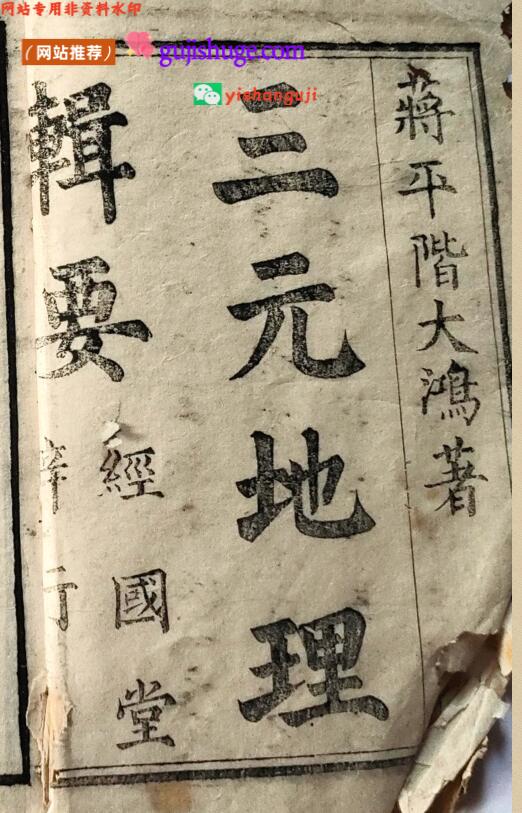 网站专用非资料水印
（网站推荐）
gujishuge.com
yishanguji
蔣平階大鴻著
三元地理
輯要
經國堂
行